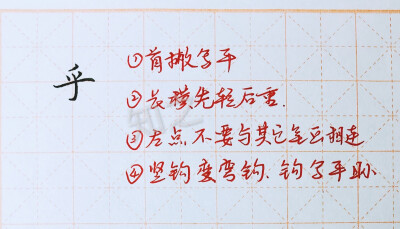 乎
①首撇写平
②长横先轻后重.
③左点不要与其它笔画相连
④竖钩变弯钩.钩写平